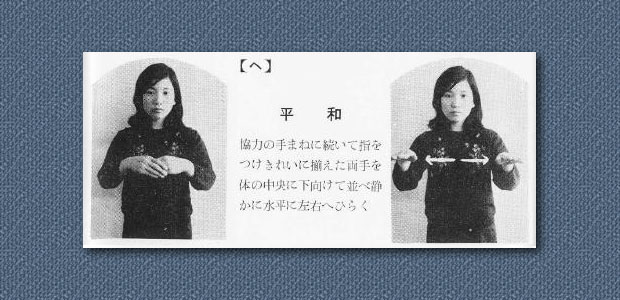 【へ】
平和
協力の手まねに続いて指を
つけきれいに揃えた両手を
体の中央に下向けて並べ静
かに水平に左右へひらく